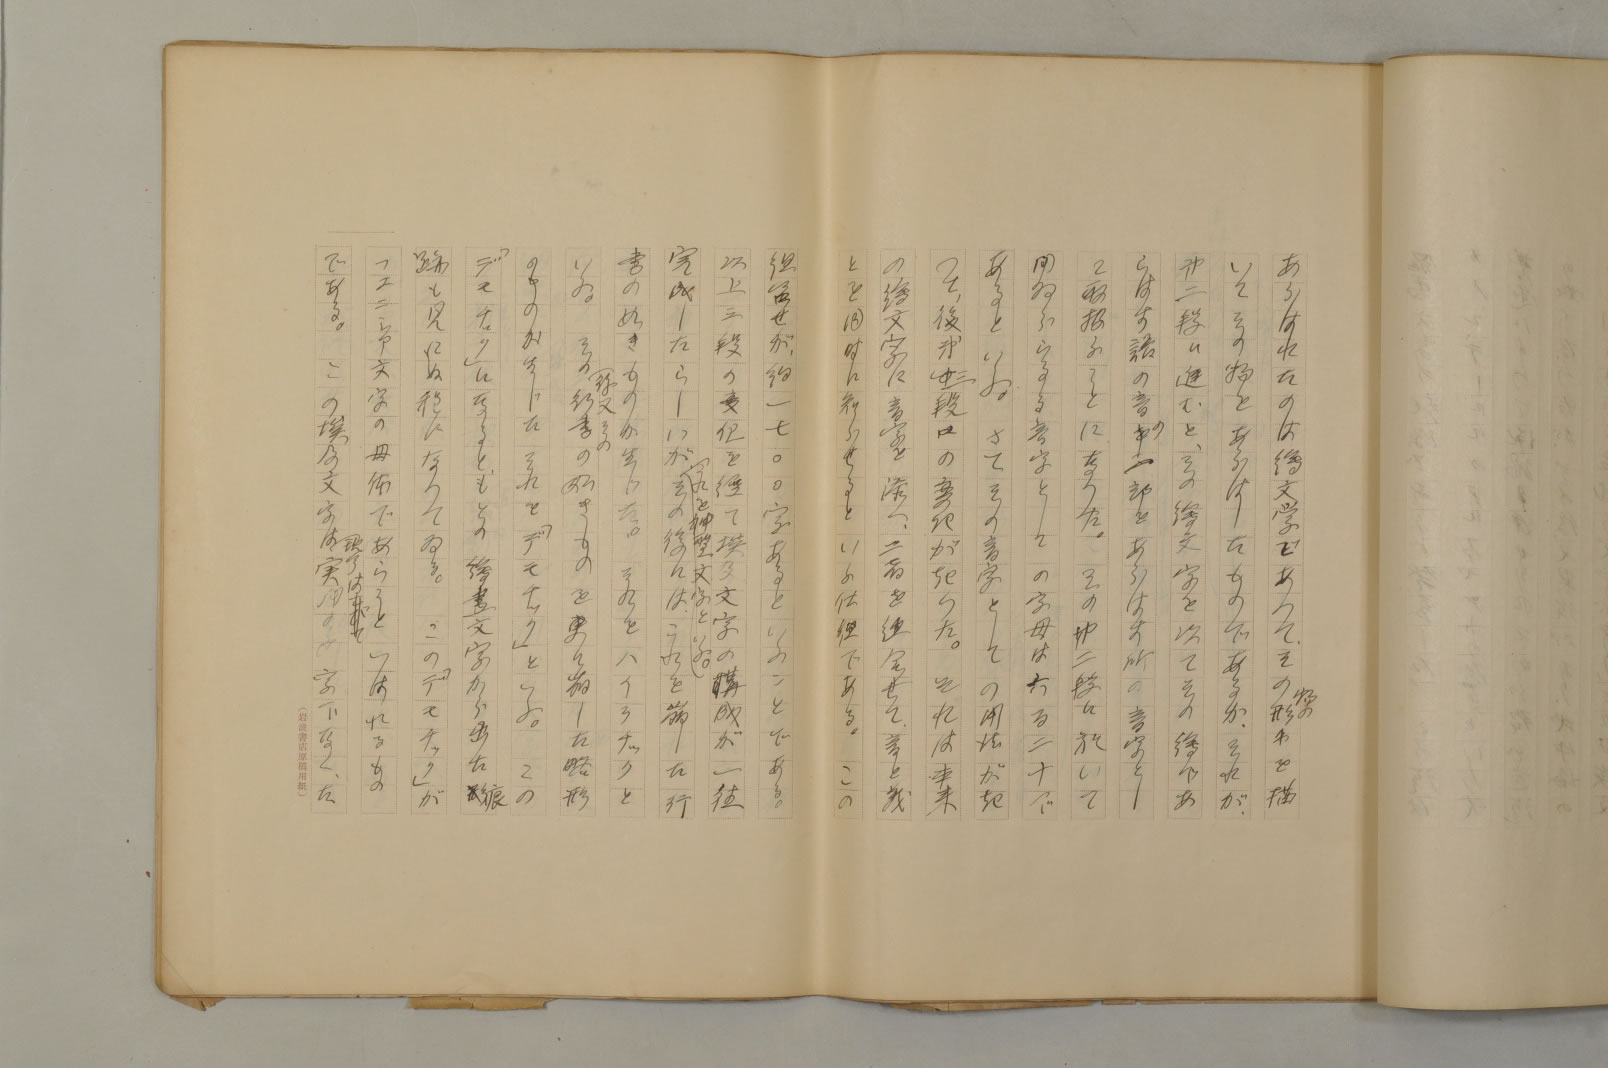 あらはれたのは繪文字であつて、その物の形を描
いてその物をあらはしたものであるが、それが、
第二段に進むと、その繪文字を以てその繪であ
らはす語の音の第一部をあらはす所の音字とし
て取扱ふことになつた。その第二段に於いて
用ゐられる音字としての字母は大る二十で
あるといふ。さてその音字としての用法が起
つて、後第三段の変化が起つた。それは本来
の繪文字に音字を添へ、二者を組合せて、音と義
とを同時に知らせるといふ仕組である。この
組合せが、約一七〇〇字あるといふことである。
以上三段の変化を經て埃及文字の構成が一往
完成したらしいが(これを神聖文字といふ。)その後には、これを崩した行
書の如きものが生じた。それをハイラチックと
いふ。その(後又その)行書の如きものを更に崩した略形
のものが生じたそれを「デモチック」といふ。この
「デモチック」になると、もとの繪畫文字から出た痕
跡も見えぬ程になつてゐる。この「デモチック」が
フエニシヤ文字の母体であらうといはれるもの
である。この埃及文字は現今は死字で、た
(岩波書店原稿用紙)